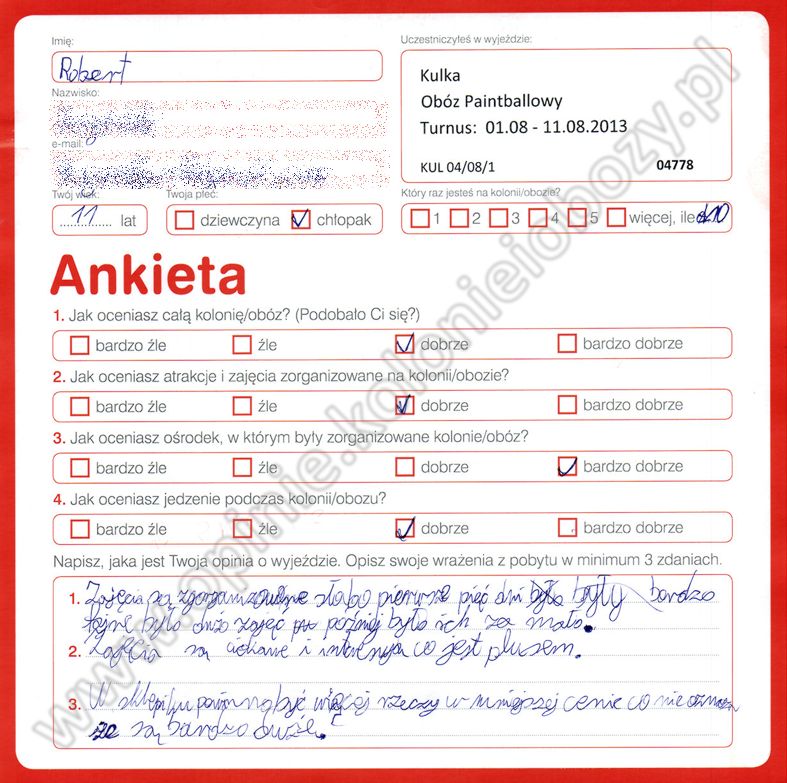 Imię:
Robert
Nazwisko:
e-mail:
Twój wiek:
11 lat
Twoja płeć:
dziewczyna chłopak
Uczestniczyłeś w wyjeździe:
Kulka
Obóz Paintballowy
Turnus: 01.08 - 11.08.2013
KUL 04/08/1 04778
Który raz jesteś na kolonii/obozie?
1 2 3 4 5 więcej, ile 10
Ankieta
1. Jak oceniasz całą kolonię/obóz? (Podobało Ci się?)
bardzo źle źle dobrze bardzo dobrze
2. Jak oceniasz atrakcje i zajęcia zorganizowane na kolonii/obozie?
bardzo źle źle dobrze bardzo dobrze
3. Jak oceniasz ośrodek, w którym były zorganizowane kolonie/obóz?
bardzo źle źle dobrze bardzo dobrze
4. Jak oceniasz jedzenie podczas kolonii/obozu?
bardzo źle źle dobrze bardzo dobrze
Napisz, jaka jest Twoja opinia o wyjeździe. Opisz swoje wrażenia z pobytu w minimum 3 zdaniach.
1. Zajęcia są zorganizowane słabo pierwsze pięć dni były bardzo
fajne było dużo zajęć później było ich za mało.
2. Zajęcia są ciekawe i co jest plusem.
3. W sklepiku powinno być więcej rzeczy w mniejszej cenie co nie
że są bardzo duże.
www.opinie.kolonieiobozy.pl